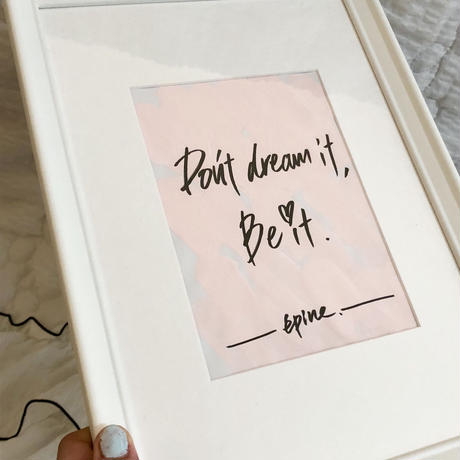 Don't dream it,
Be it.
épine.